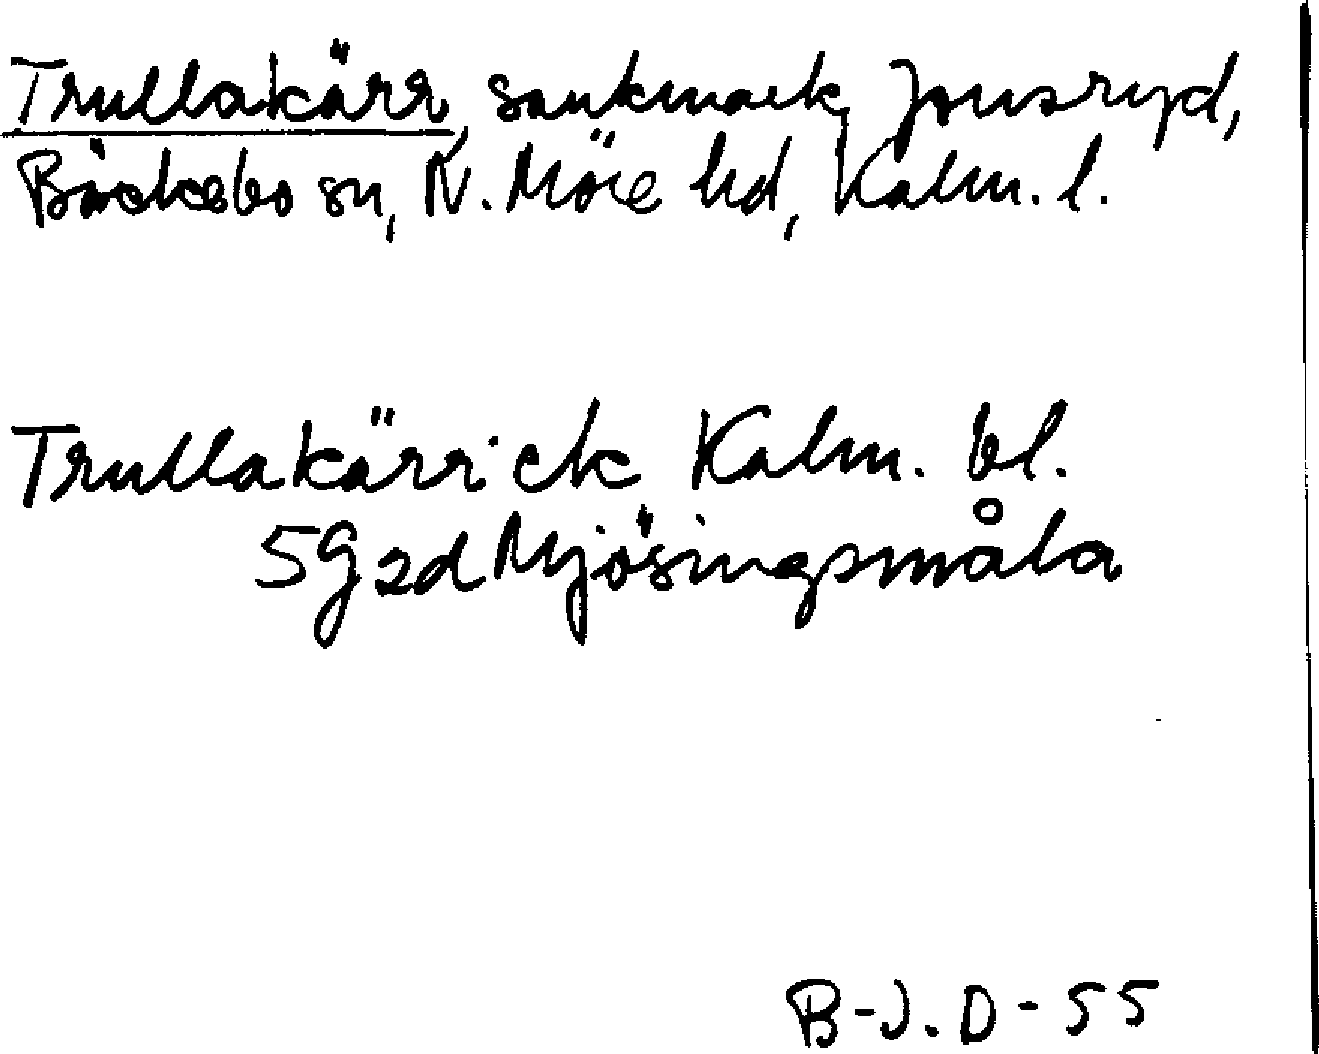 Trullakärr, sankmark, Jonsryd,
Bäckebo sn, N. Möre hd, Kalm. l.
Trullakärr ek Kalm. bl.
5 G 2d Mjösingsmåla
B-J. D-55